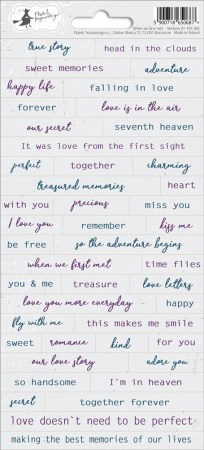 true story head in the clouds
sweet memories adventure
happy life falling in love
forever love is in the air
our secret seventh heaven
It was love from the first sight
perfect together charming
treasured memories heart
with you precious miss you
I love you remember kiss me
be free so the adventure begins
when we first met time flies
you & me treasure love letters
love you more everyday happy
fly with me this makes me smile
sweet romance kind for you
our love story adore you
so handsome I`m in heaven
secret together forever
love doesn`t need to be perfect
making the best memories of our lives